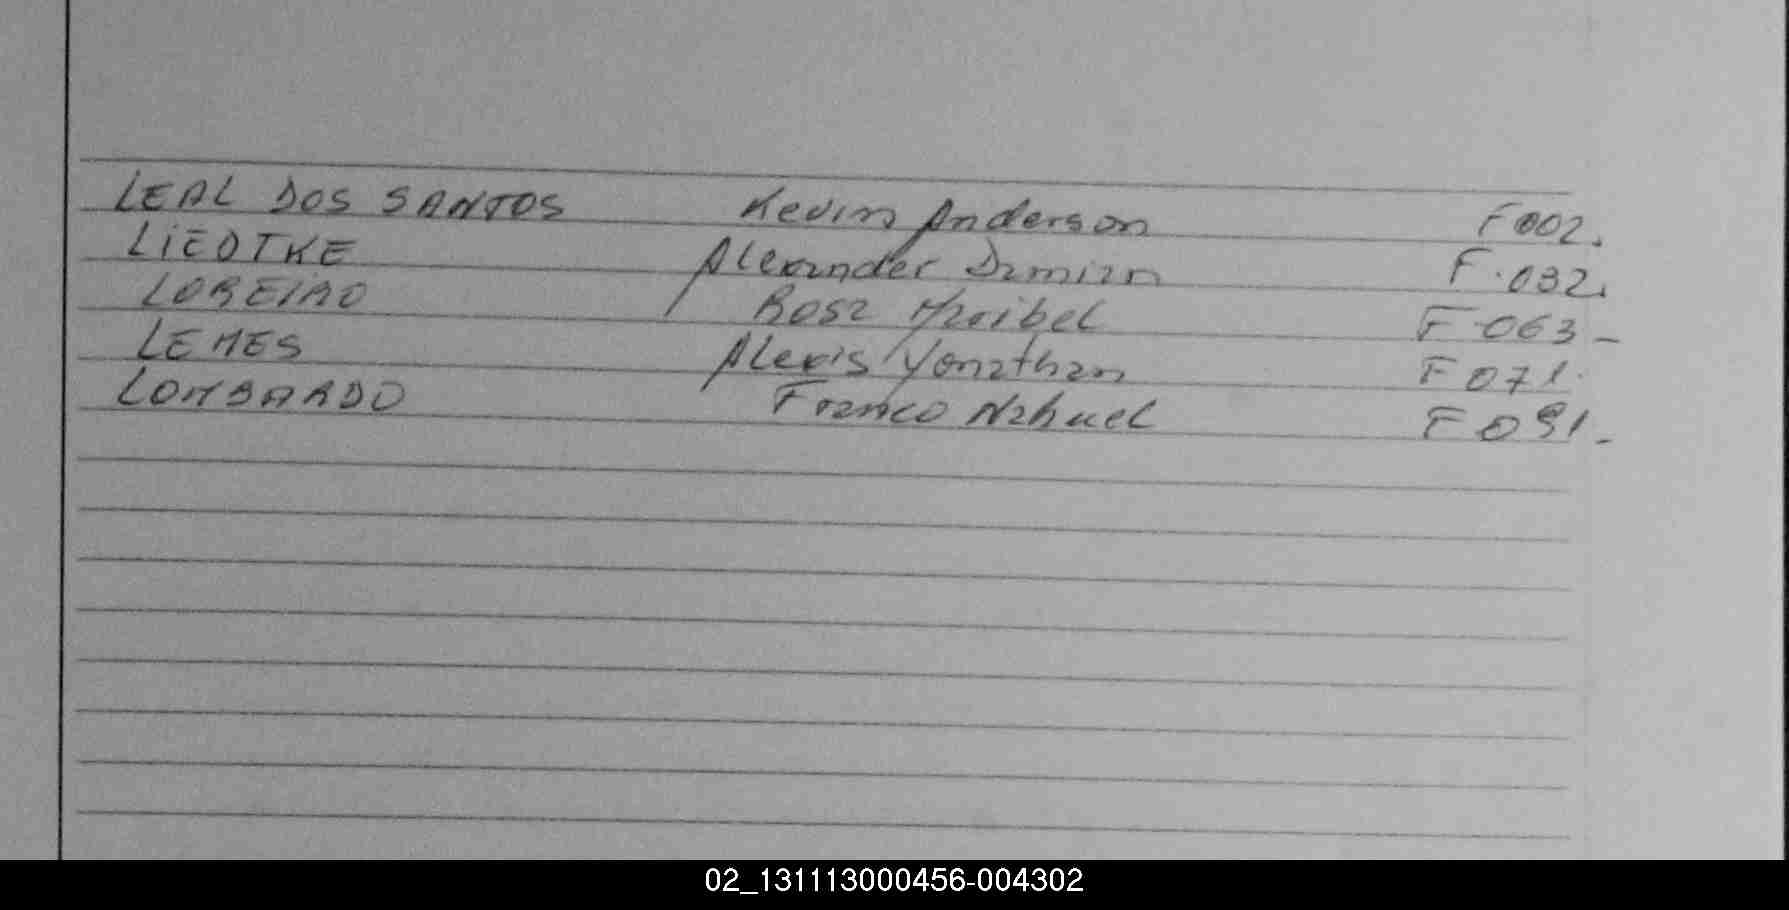 LEAL DOS SANTOS Kevin Anderson F 002.
LIEDTKE Alexander Damian F. 032.
LOREIRO Rosa Maribel F 063 -
LEMES Alexis Yonathan F 071.
LOMBARDO Franco Nahuel F 091.
02_131113000456-004302